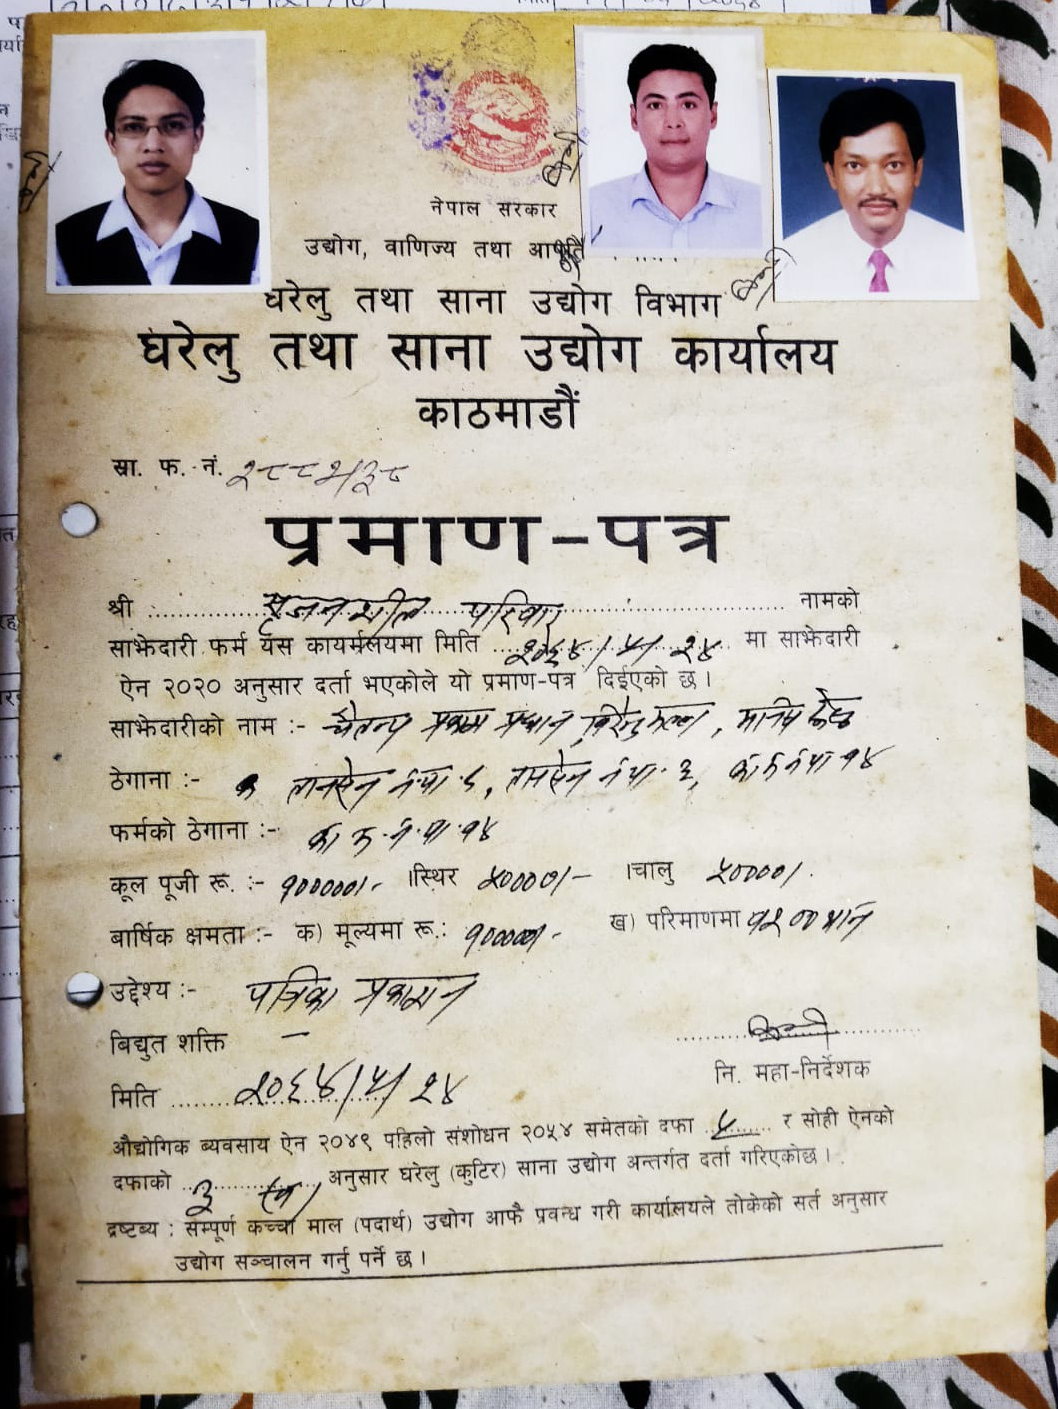 नेपाल सरकार
उद्योग, वाणिज्य तथा आपूर्ति
घरेलु तथा साना उद्योग विभाग
घरेलु तथा साना उद्योग कार्यालय
काठमाडौं
स्रा. फ. नं.
प्रमाण-पत्र
श्री सृजनशील परिवार नामको
साझेदारी फर्म यस कायर्मलयमा मिति २०६४/५/२४ मा साझेदारी
ऐन २०२० अनुसार दर्ता भएकोले यो प्रमाण-पत्र दिईएको छ।
साझेदारीको नाम :- चैतन्य प्रकाश प्रधान,
ठेगाना :- तानसेन न.पा. ८, तानसेन न.पा. ३, का.म.न.पा १४
फर्मको ठेगाना :- का.म.न.पा.१४
कूल पूजी रू. :- १०००००।- ।स्थिर ५००००।- ।चालु ५००००।
बार्षिक क्षमता :- क) मूल्यमा रू.: १०००००।- ख) परिमाणमा १२०० थान
उद्देश्य :- पत्रिका प्रकाशन
बिद्युत शक्ति —
नि. महा-निर्देशक
मिति २०६४/५/२४
औद्योगिक ब्यवसाय ऐन २०४९ पहिलो संशोधन २०५४ समेतको दफा र सोही ऐनको
दफाको अनुसार घरेलु (कुटिर) साना उद्योग अन्तर्गत दर्ता गरिएकोछ।
द्रष्टब्य : सम्पूर्ण कच्चा माल (पदार्थ) उद्योग आफै प्रवन्ध गरी कार्यालयले तोकेको सर्त अनुसार
उद्योग सञ्चालन गर्नु पर्ने छ।